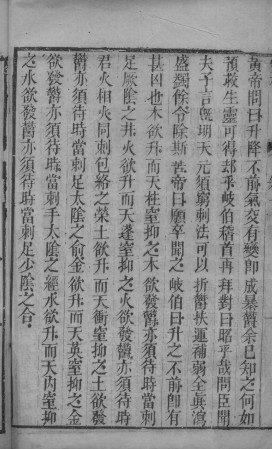 黃帝問曰升降不前氣交有變即成暴鬱余已知之何如
預救生靈可得却乎岐伯稽首再拜對曰昭乎哉問臣聞
夫子言既明天元須窮刺法可以折鬱扶運補弱全真瀉
盛蠲餘令除斯苦帝曰願卒聞之岐伯曰升之不前即有
甚凶也木欲升而天柱窒抑之木欲發鬱亦須待時當刺
足厥陰之井火欲升而天蓬窒抑之火欲發鬱亦須待時
君火相火同刺包絡之滎土欲升而天衝窒抑之土欲發
鬱亦須待時當刺足太陰之俞金欲升而天英窒抑之金
欲發鬱亦須待時當刺手太陰之經水欲升而天內窒抑
之水欲發鬱亦須待時當刺足少陰之合